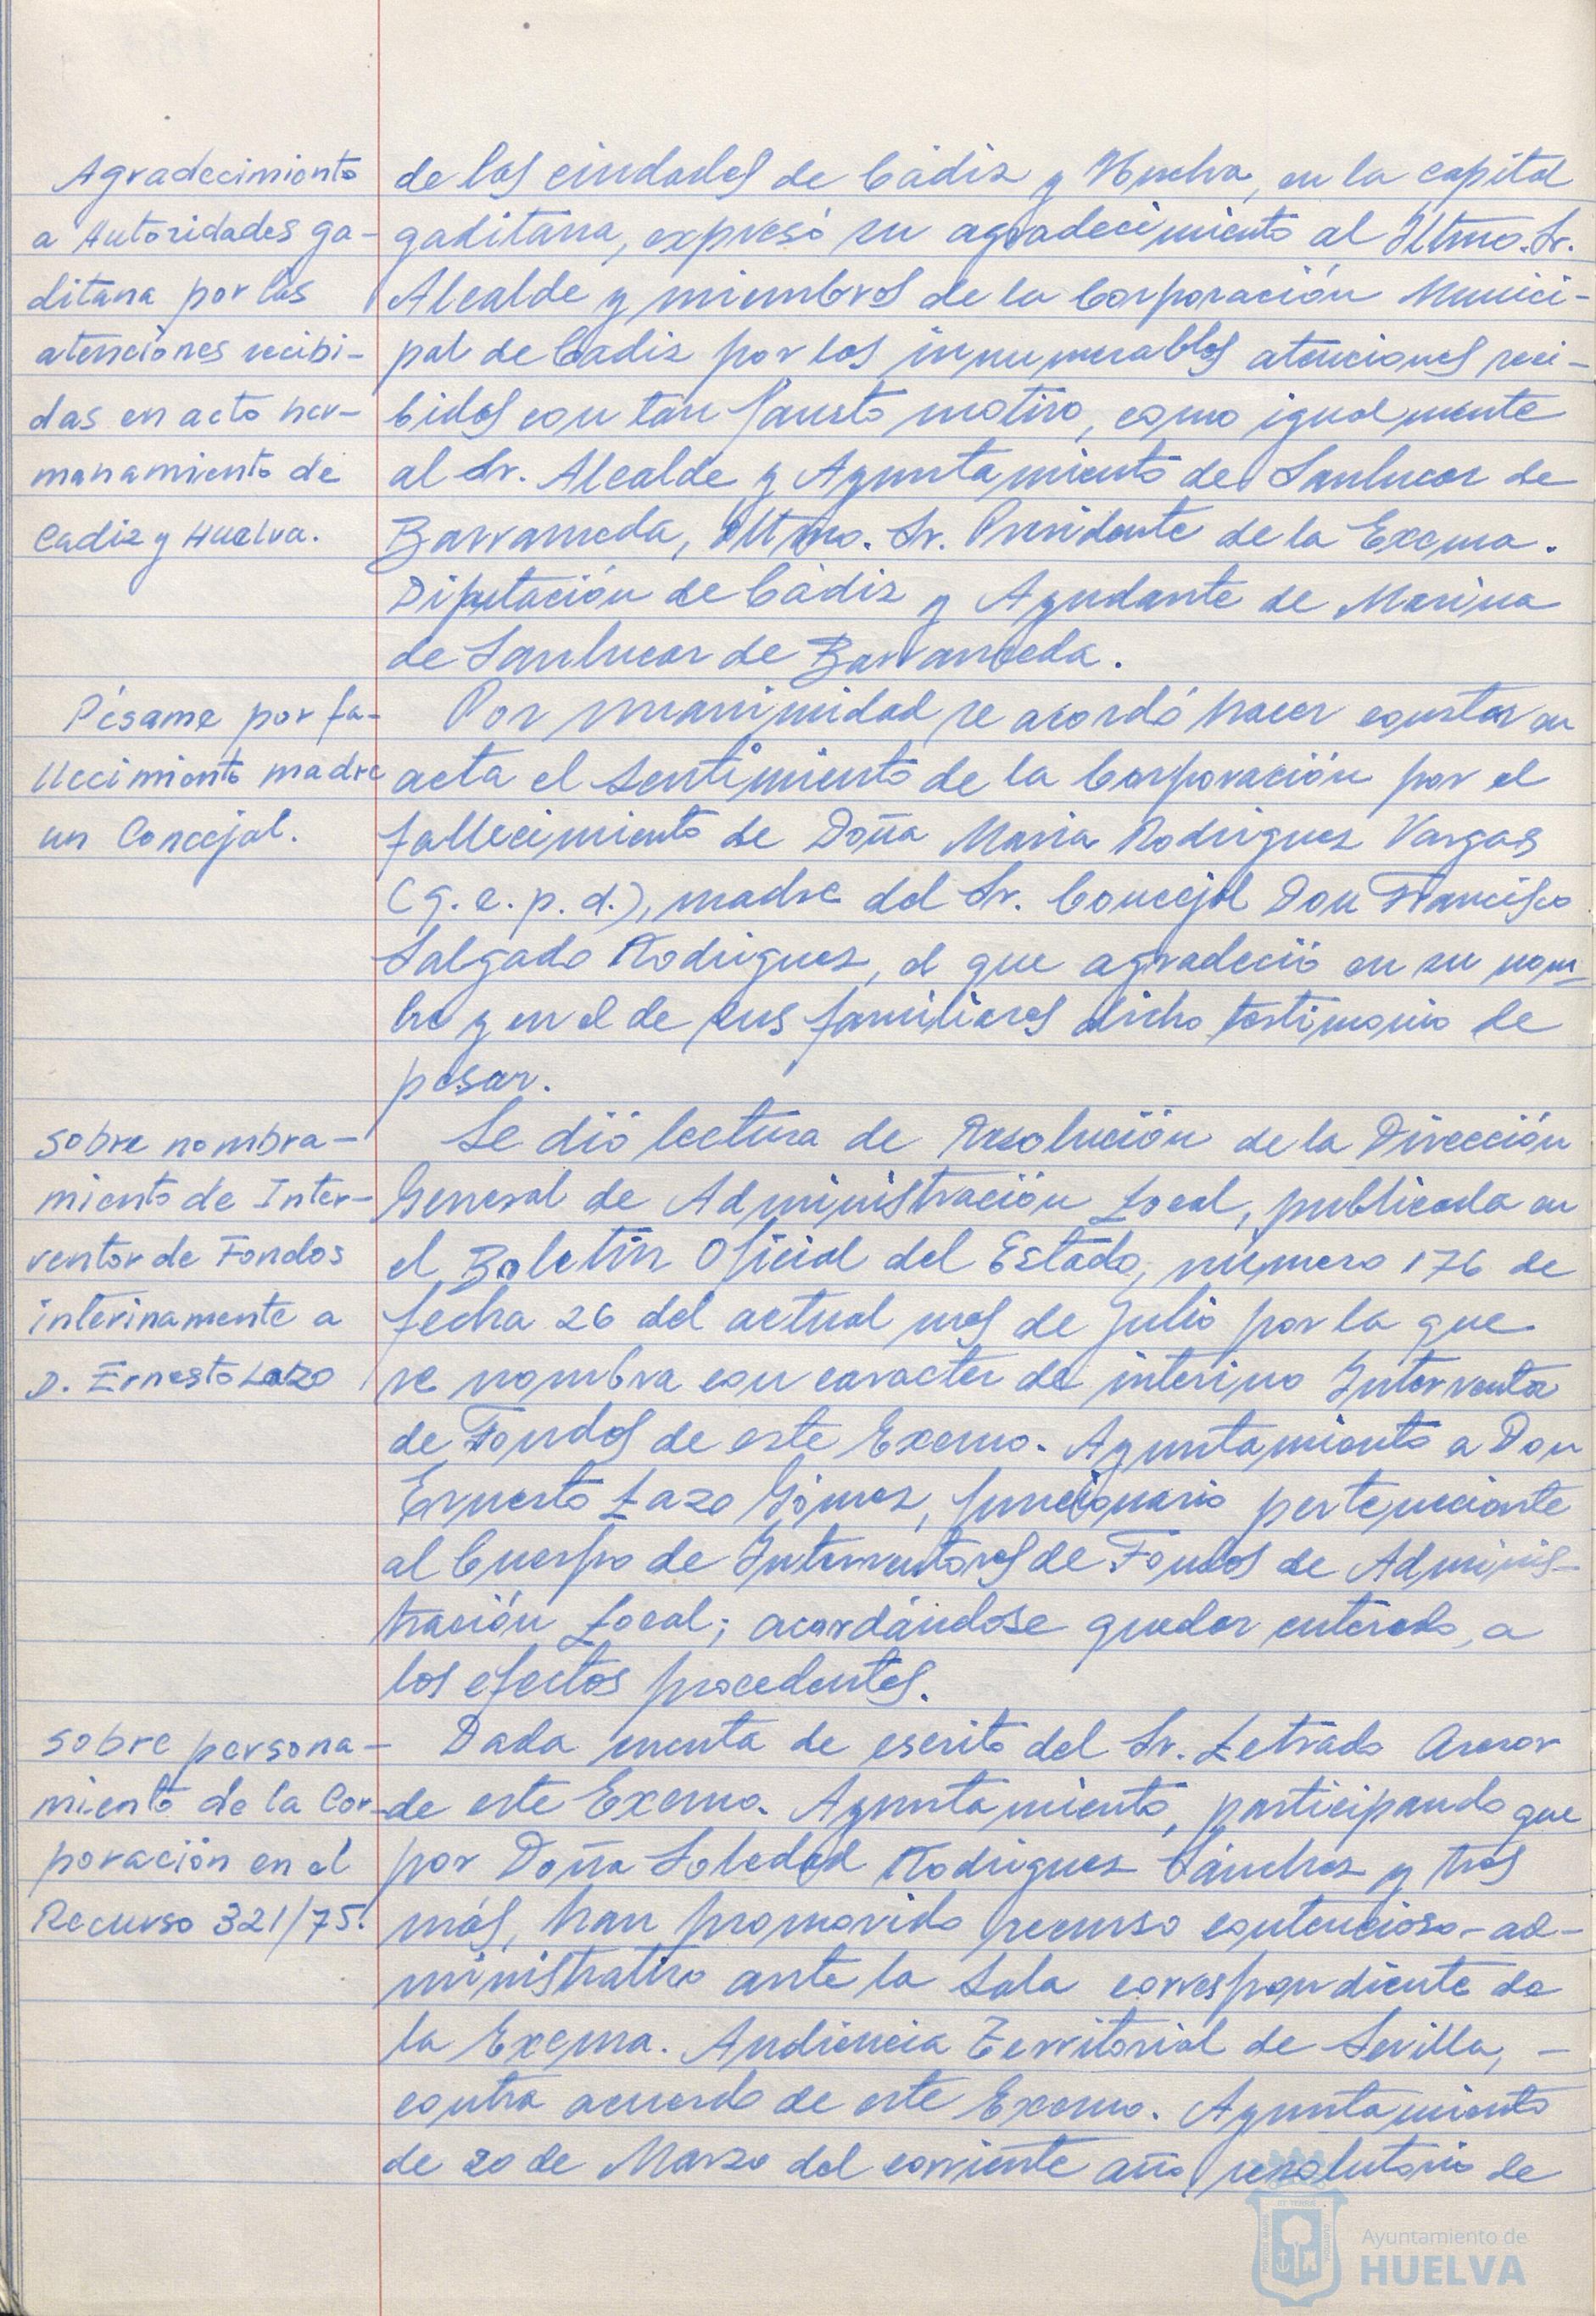 Agradecimiento
a Autoridades ga-
ditana por las
atenciones recibi-
das en acto her-
manamiento de
Cadiz y Huelva.
de las ciudades de Cádiz y Huelva, en la capital
gaditana, expresó su agradecimiento al Iltmo. Sr.
Alcalde y miembros de la Corporación Munici-
pal de Cadiz por las innumerables atenciones reci-
bidas con tan fausto motivo, como igualmente
al Sr. Alcalde y Ayuntamiento de Sanlucar de
Barrameda, Iltmo. Sr. Presidente de la Excma.
Diputación de Cádiz y Ayudante de Marina
de Sanlucar de Barrameda.
Pésame por fa-
llecimiento madre
un Concejal.
Por unanimidad se acordó hacer constar en
acta el sentimiento de la Corporación por el
fallecimiento de Doña Maria Rodriguez Vargas
(q. e. p. d.), madre del Sr. Concejal Don Francisco
Salgado Rodriguez, el que agradeció en su nom-
bre y en el de sus familiares dicho testimonio de
pesar.
Sobre nombra-
miento de Inter-
ventor de Fondos
interinamente a
D. Ernesto Lazo
Se dió lectura de Resolución de la Dirección
General de Administración Local, publicada en
el Boletin Oficial del Estado, número 176 de
fecha 26 del actual mes de Julio por la que
se nombra con caracter de interino Interventor
de Fondos de este Excmo. Ayuntamiento a Don
Ernesto Lazo Gómez, funcionario perteneciente
al Cuerpo de Interventores de Fondos de Adminis-
tración Local; acordándose quedar enterado, a
los efectos procedentes.
Sobre persona-
miento de la Cor-
poración en el
Recurso 321/75.
Dada cuenta de escrito del Sr. Letrado Asesor
de este Excmo. Ayuntamiento, participando que
por Doña Soledad Rodriguez Sánchez y tres
más, han promovido recurso contencioso-ad-
ministrativo ante la Sala correspondiente de
la Excma. Audiencia Territorial de Sevilla, -
contra acuerdo de este Excmo. Ayuntamiento
de 20 de Marzo del corriente año, resolutorio de
Ayuntamiento de
HUELVA